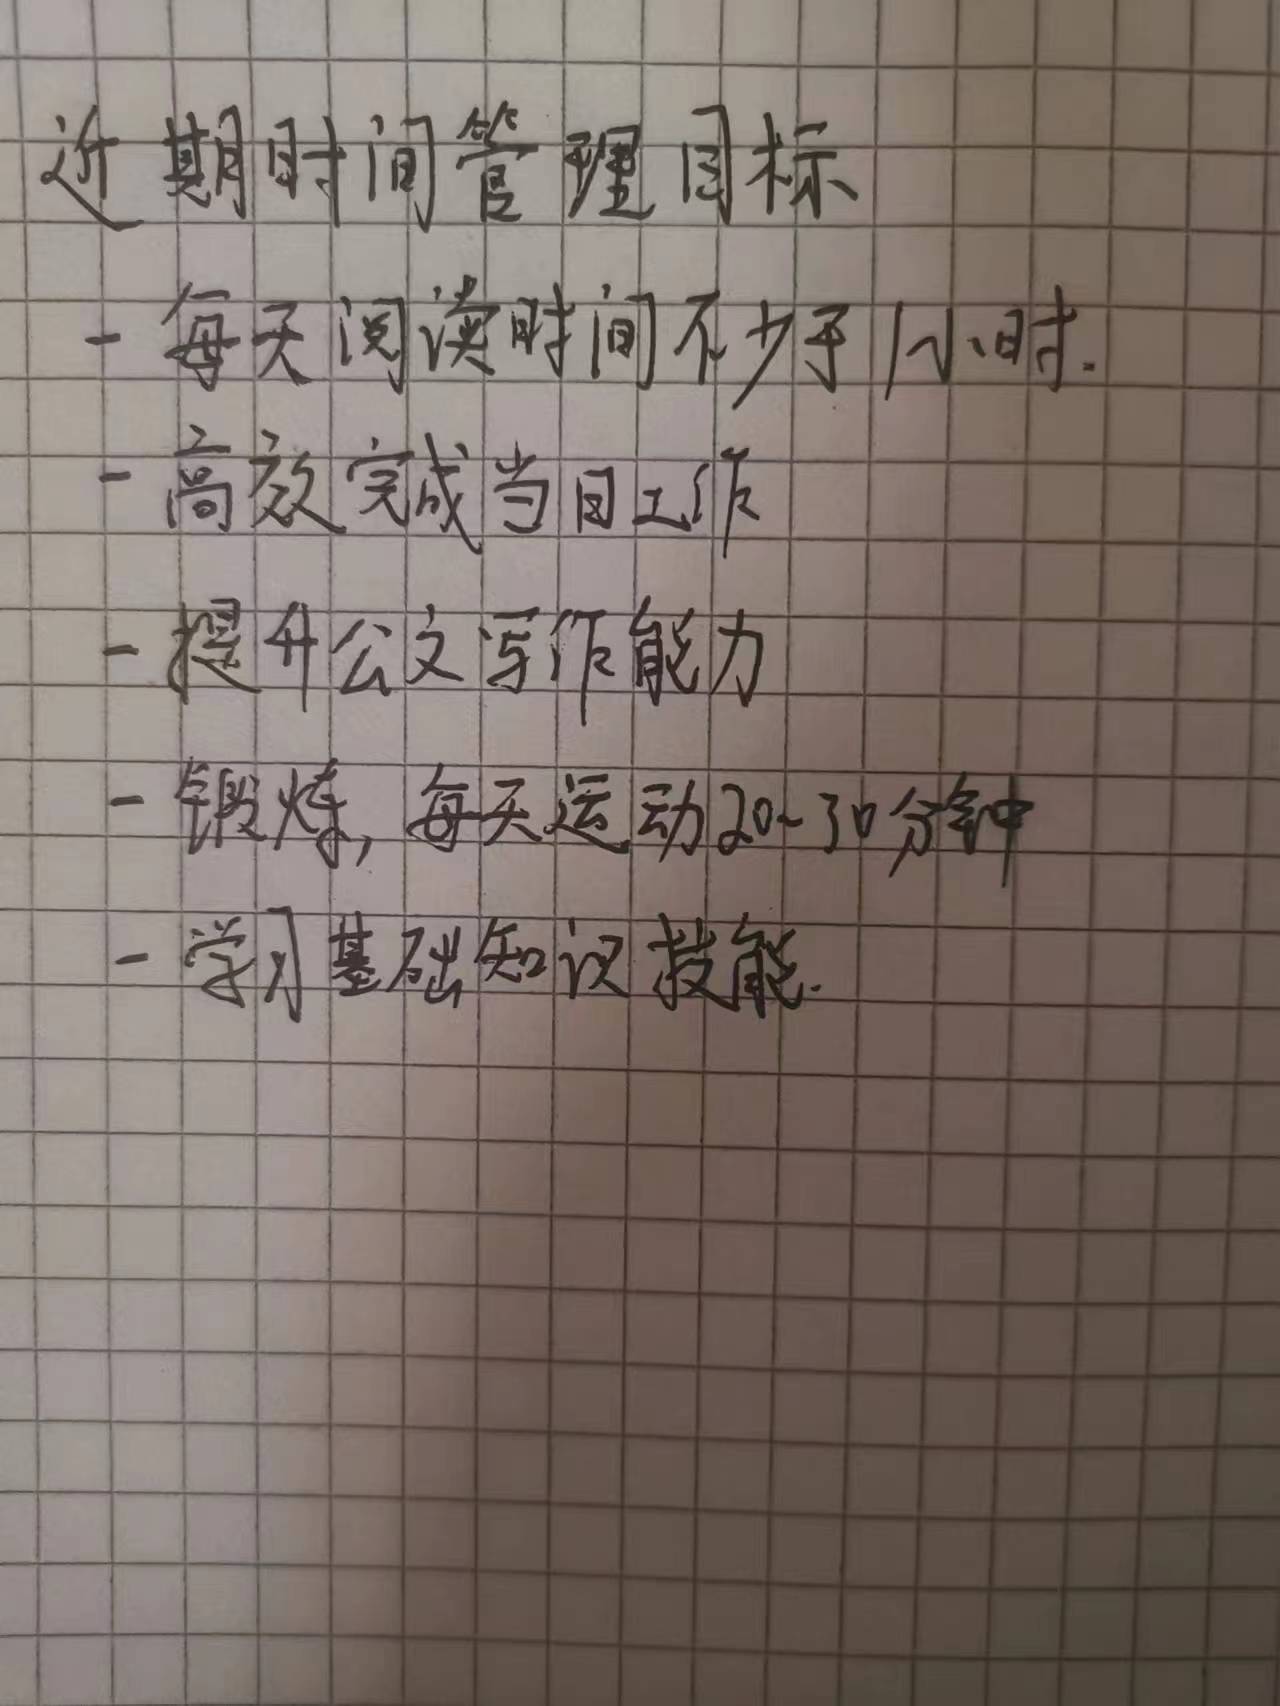 近期时间管理目标
- 每天阅读时间不少于1小时.
- 高效完成当日工作
- 提升公文写作能力
- 锻炼,每天运动20-30分钟
- 学习基础知识技能.